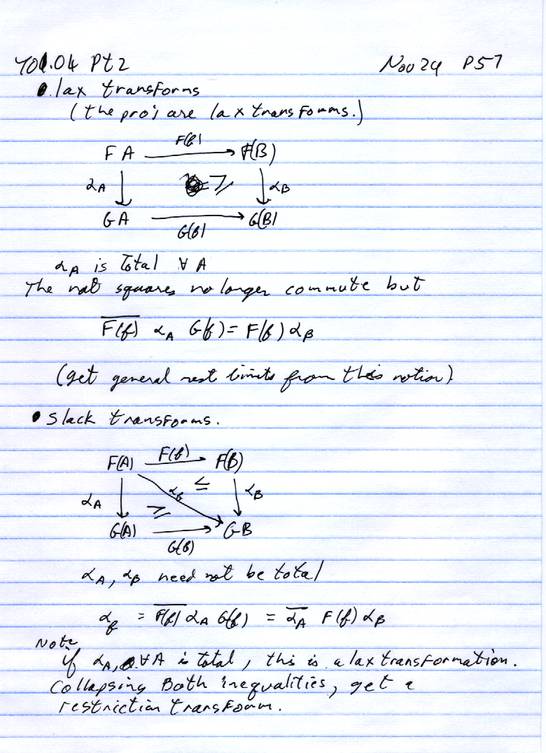 701.04 Pt 2 Nov 24 P57
• lax transforms
(the proj are lax transforms.)
F A F(f) F(B)
α_A ≥ α_B
G A G(f) G(B)
α_A is Total ∀ A
The nat squares no longer commute but
\overline{F(f)} α_A G(f) = F(f) α_B
(get general rest limits from this notion)
• Slack transforms.
F(A) F(f) F(B)
α_A α_f ≤ α_B
≥
G(A) G(f) G B
α_A, α_B need not be total
α_f = \overline{F(f)} α_A G(f) = \overline{α_A} F(f) α_B
Note
if α_A, ∀A is total, this is a lax transformation.
Collapsing Both inequalities, get a
restriction transform.